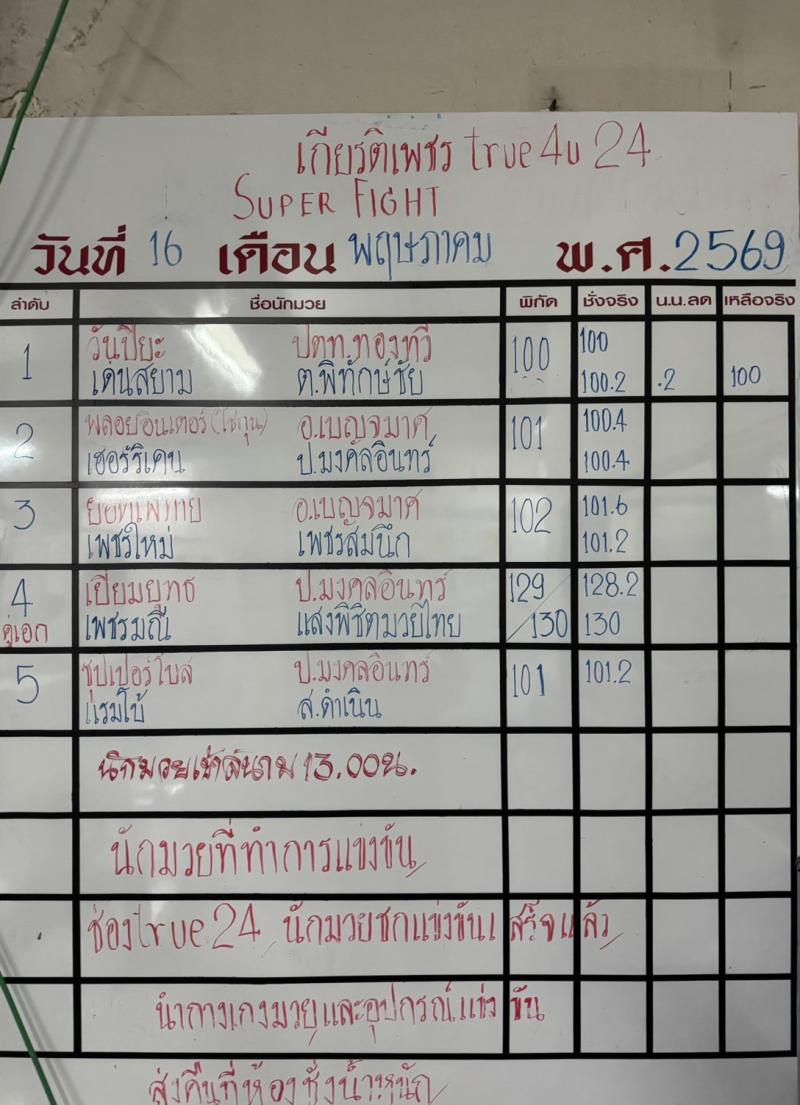 เกียรติเพชร true4u 24
SUPER FIGHT
วันที่ 16 เดือน พฤษภาคม พ.ศ. 2569
ลำดับ ชื่อนักมวย พิกัด ชั่งจริง น.น.ลด เหลือจริง
1 วันปิยะ ปตท.ทองทวี 100 100
เด่นสยาม ต.พิทักษ์ชัย 100.2 .2 100
2 พลอยอินเตอร์(โชกุน) อ.เบญจมาศ 101 100.4
เฮอร์ริเคน ป.มงคลอินทร์ 100.4
3 ยอดเพทาย อ.เบญจมาศ 102 101.6
เพชรใหม่ เพชรสมนึก 101.2
4 เปี่ยมยุทธ ป.มงคลอินทร์ 129 128.2
คู่เอก เพชรมณี แสงพิชิตมวยไทย /130 130
5 ซุปเปอร์โบ๊ส ป.มงคลอินทร์ 101 101.2
แรมโบ้ ส.ดำเนิน
นักมวยเข้าสนาม 13.00น.
นักมวยที่ทำการแข่งขัน
ช่องtrue24 นักมวยชกแข่งขันเสร็จแล้ว
นำกางเกงมวยและอุปกรณ์แข่งขัน
ส่งคืนที่ห้องชั่งน้ำหนัก